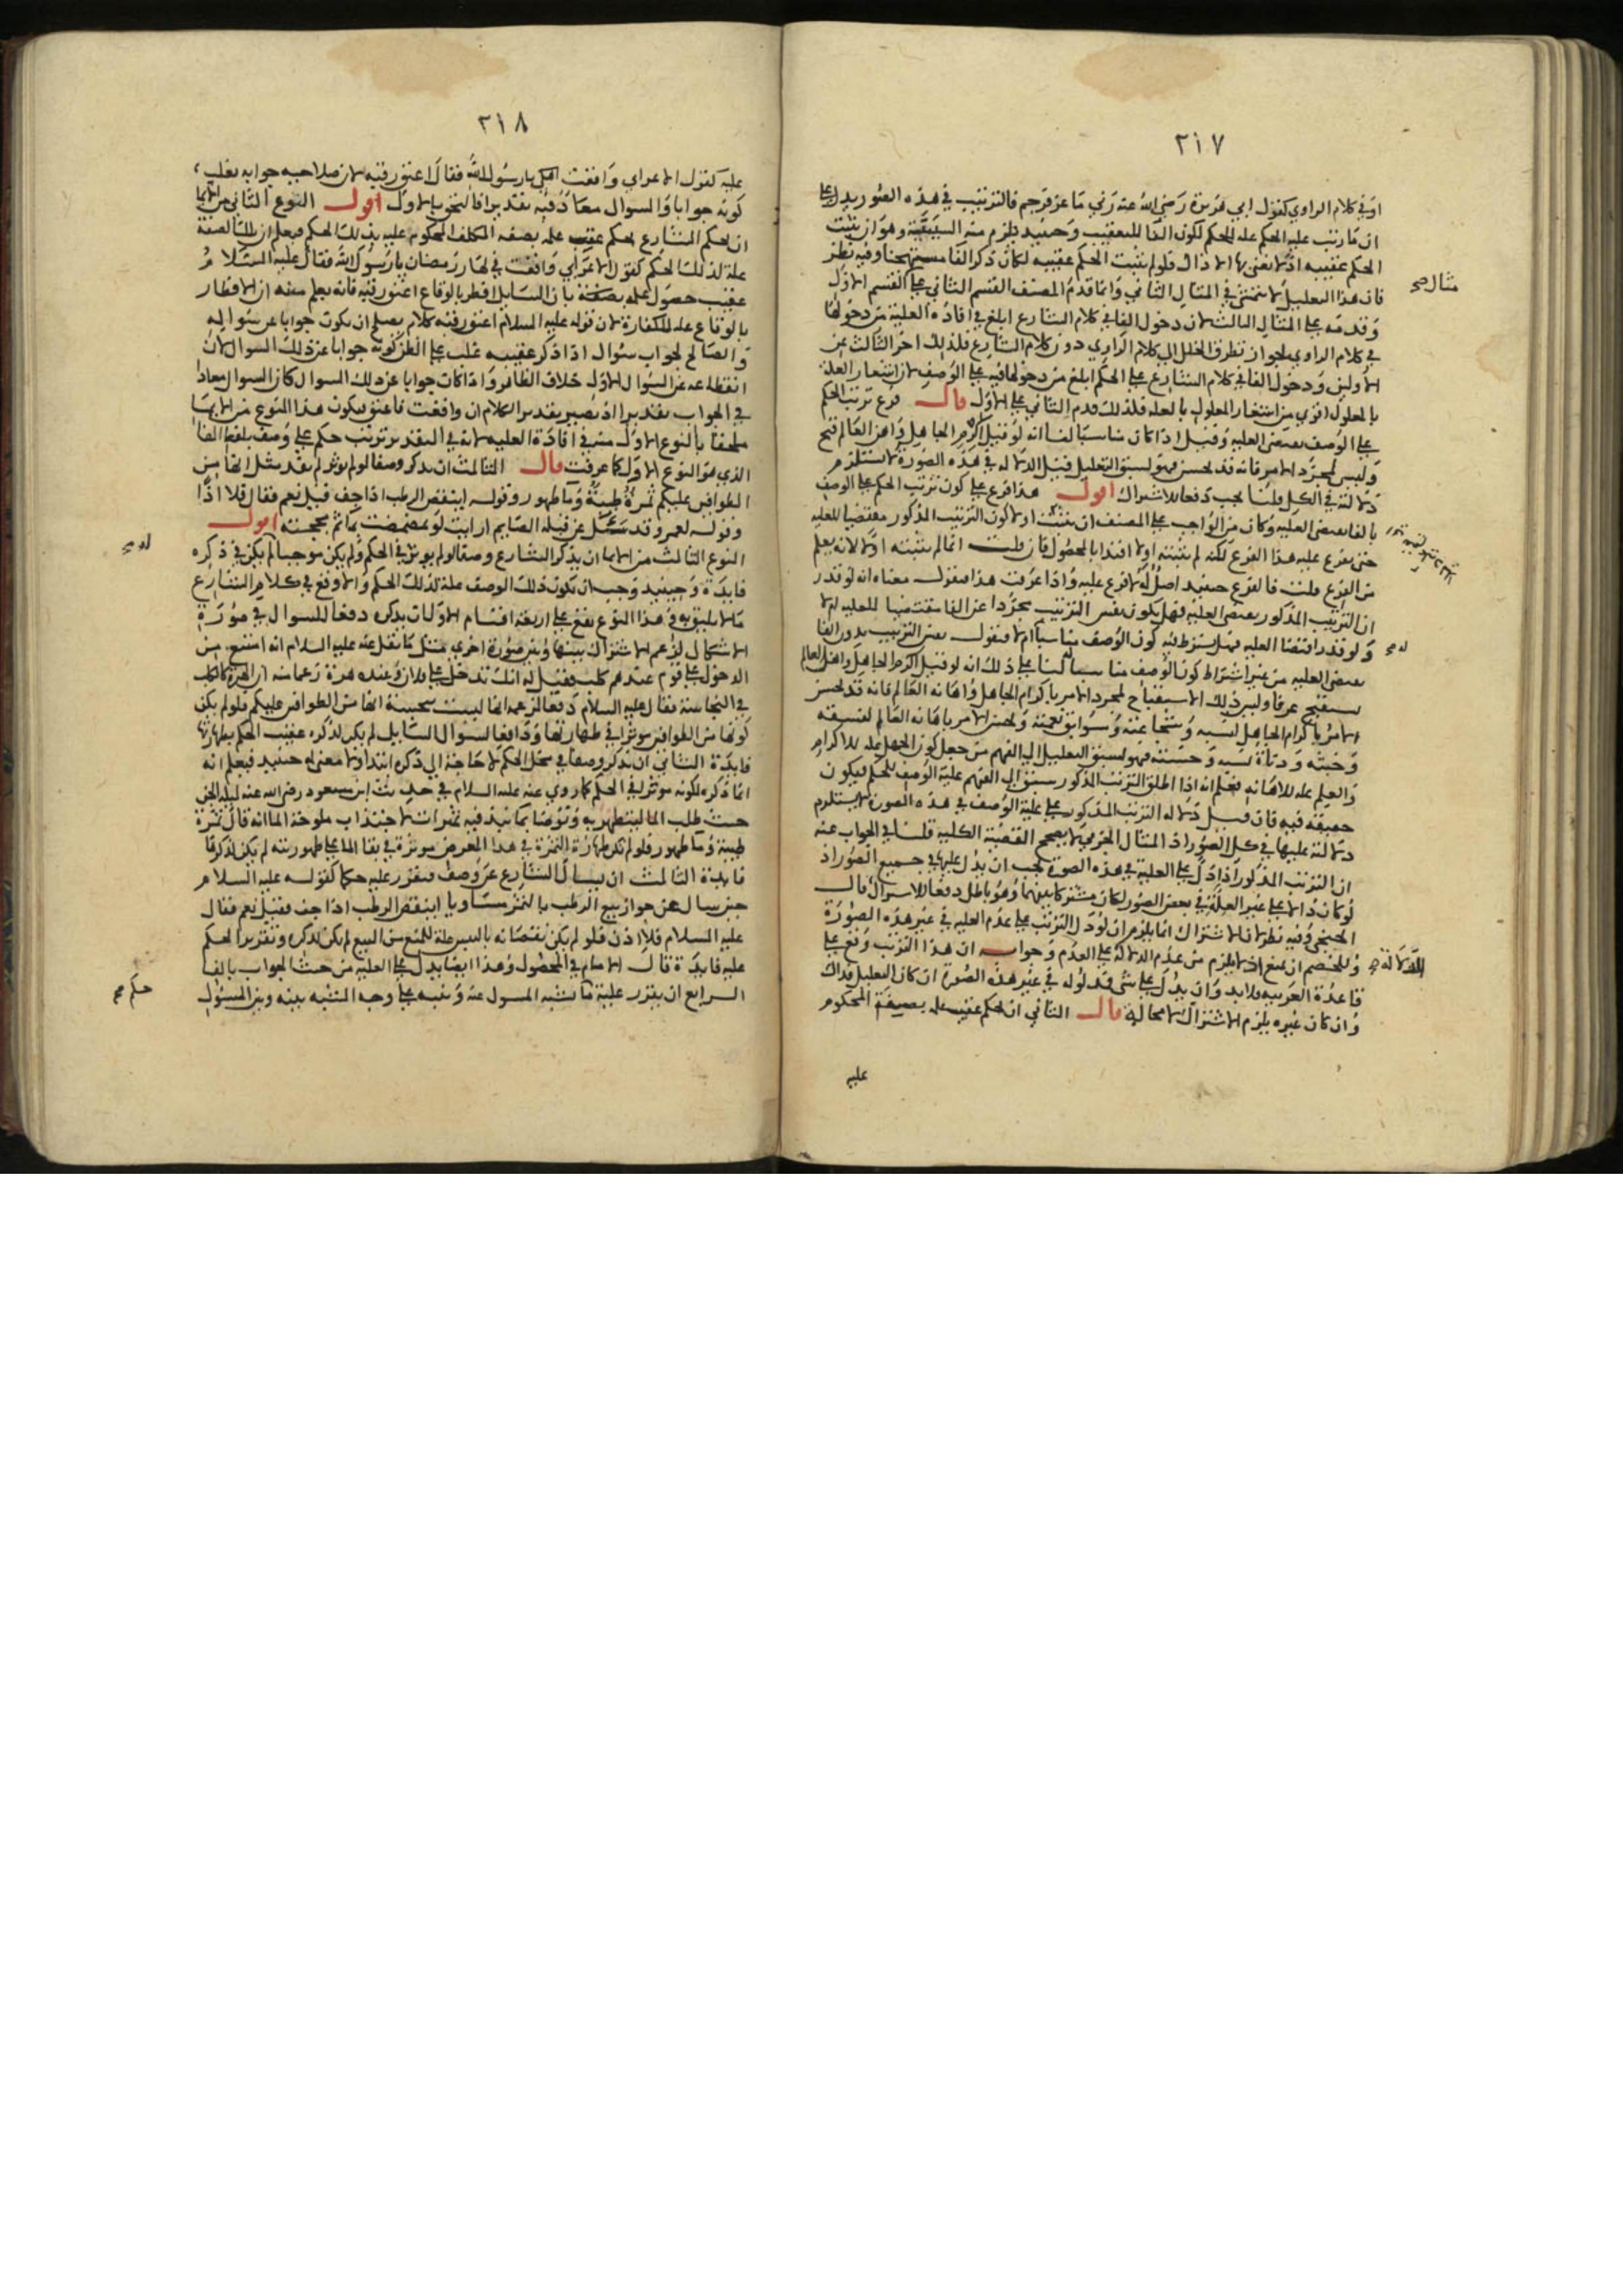 ٢١٧
او في كلام الراوي كقول ابي هريرة رضي الله عنه زني ماعز فرجم فالترتيب في هذه الصور يدل على
ان ما رتب عليه الحكم علة للحكم لكون الفا للتعقيب وحينيذ يلزم منه السببية وهو ان يثبت
الحكم عقيبه اذ لا نعني بها الا ذاك فلو لم يثبت الحكم عقيبه لكان ذكر الفا مستهجنا وفيه نظر
فان هذا التعليل لا يتمشى في المثال الثاني وانما قدم المصنف القسم الثاني على القسم الاول
وقدمه على المثال الثالث لان دخول الفا في كلام الشارع ابلغ في افادة العلية من دخولها
في كلام الراوي لجواز تطرق الخلل الى كلام الراوي دون كلام الشارع فلذلك اخر الثالث عن
الاولين ودخول الفا في كلام الشارع على الحكم ابلغ من دخولها فيه على الوصف لان اشعار العلة
بالمعلول اقوي من اشعار المعلول بالعلة فلذلك قدم الثاني على الاول قال فرع ترتيب الحكم
على الوصف يقتضي العلية وقيل اذا كان مناسبا لنا انه لو قيل اكرم الجاهل واهن العالم قبح
وليس لمجرد الامر فانه قد يحسن فهو لسبق التعليل قيل الدلالة في هذه الصورة لا تستلزم
دلالته في الكل قلنا يجب دفعا للاشتراك اقول هذا فرع على كون ترتيب الحكم على الوصف
بالفا يقتضي العلية وكان من الواجب على المصنف ان يثبت اولا كون الترتيب المذكور مقتضيا للعلية
حتى يفرع عليه هذا الفرع لكنه لم يثبته اولا اقتدا بالمحصول فان قلت انما لم يثبته اولا لانه يعلم
من الفرع قلت فالفرع حينيذ اصل له لا فرع عليه واذا عرفت هذا فنقول معناه انه لو قدر
ان الترتيب المذكور يقتضي العلية فهل يكون نفس الترتيب مجردا عن الفا مقتضيا للعلية ام لا
ولو قدر اقتضا العلية فهل يشترط فيه كون الوصف مناسبا ام لا فنقول نفس الترتيب بدون الفا
يقتضي العلية من غير اشتراط كون الوصف مناسبا لنا على ذلك انه لو قيل اكرم الجاهل واهن العالم
يستقبح عرفا وليس ذلك الاستقباح لمجرد الامر باكرام الجاهل واهانة العالم فانه قد يحسن
الامر باكرام الجاهل لنسبه وشجاعته وسوابق نعمته ويحسن الامر باهانة العالم لفسقه
وخبثه ودناة نسبه وخسته فهو لسبق التعليل الى الفهم من جعل كون الجهل علة للاكرام
والعلم علة للاهانة فيعلم انه اذا اطلق الترتيب المذكور يسبق الى الفهم علية الوصف للحكم فيكون
حقيقة فيه فان قيل دلالة الترتيب المذكور على علية الوصف في هذه الصورة لا يستلزم
دلالته عليها في كل الصور اذ المثال الجزئي لا يصحح القضية الكلية قلنا في الجواب عنه
ان الترتيب المذكور اذا دل على العلية في هذه الصورة يجب ان يدل عليها في جميع الصور اذ
لو كان دالا على غير العلية في بعض الصور لكان مشتركا بينهما وهو باطل دفعا للاشتراك قال
الخنجي وفيه نظر لان الاشتراك انما يلزم ان لو دل الترتيب على عدم العلية في غير هذه الصورة
وللخصم ان يمنع اذ لا يلزم من عدم الدلالة على العدم وجوابه ان هذا الترتيب وقع على
قاعدة العربية فلا بد وان يدل على شي فمدلوله في غير هذه الصورة ان كان التعليل فذاك
وان كان غيره يلزم الاشتراك لا محالة قال الثاني ان يحكم عقيب علمه بصفة المحكوم
عليه
مثال صح
له صح
الدلالة صح
٢١٨
عليه كقول الاعرابي واقعت اهلي يا رسول الله فقال اعتق رقبة لان صلاحية جوابه تغلب
كونه جوابا والسوال معاد فيه تقديرا فالتحق بالاول اقول النوع الثاني من الايما
ان يحكم الشارع بحكم عقيب علمه بصفة المكلف المحكوم عليه بذلك الحكم فيعلم ان تلك الصفة
علة لذلك الحكم كقول الاعرابي واقعت في نهار رمضان يا رسول الله فقال عليه السلام
عقيب حصول علمه بصفته بان السايل افطر بالوقاع اعتق رقبة فانه يعلم منه ان الافطار
بالوقاع علة للكفارة لان قوله عليه السلام اعتق رقبة كلام يصلح ان يكون جوابا عن سواله
والصالح لجواب سوال اذا ذكر عقيبه غلب على الظن كونه جوابا عن ذلك السوال لان
انقطاعه عن السوال الاول خلاف الظاهر واذا كان جوابا عن ذلك السوال كان السوال معادا
في الجواب تقديرا اذ يصير تقدير الكلام ان واقعت فاعتق فيكون هذا النوع من الايما
ملحقا بالنوع الاول منه في افادة العلية لانه في التقدير ترتيب حكم على وصف بلفظ الفا
الذي هو النوع الاول كما عرفت قال الثالث ان يذكر وصفا لو لم يوثر لم يفد مثل انها من
الطوافين عليكم ثمرة طيبة وما طهور وقوله اينقص الرطب اذا جف قيل نعم فقال فلا اذا
وقوله لعمر وقد سئل عن قبلة الصايم ارايت لو تمضمضت بما ثم مججته اقول
النوع الثالث من الايما ان يذكر الشارع وصفا لو لم يوثر في الحكم ولم يكن موجبا لم يكن في ذكره
فايدة وحينيذ وجب ان يكون ذلك الوصف علة لذلك الحكم والا وقع في كلام الشارع
ما لا يليق به وهذا النوع يقع على اربعة اقسام الاول ان يذكره دفعا للسوال في صورة
الاشكال لزعم الاشتراك بينها وبين صورة اخري مثل ما نقل عنه عليه السلام انه امتنع من
الدخول على قوم عندهم كلب فقيل له انك تدخل على فلان وعنده هرة زعما منه ان الهرة كالكلب
في النجاسة فقال عليه السلام دفعا لزعمه انها ليست بنجسة انها من الطوافين عليكم فلو لم يكن
كونها من الطوافين موثرا في طهارتها ودافعا لسوال السايل لم يكن لذكره عقيب الحكم بطهارتها
فايدة الثاني ان يذكر وصفا في محل الحكم لا حاجة الى ذكره ابتدا ولا معنى له حينيذ فيعلم انه
انما ذكره لكونه موثرا في الحكم كما روي عنه عليه السلام في حديث ابن مسعود رضي الله عنه ليلة الجن
حيث طلب الما ليتطهر به وتوضا بما نبذ فيه تمرات لاجتذاب ملوحة الما انه قال تمرة
طيبة وما طهور فلو لم تكن طهارة التمرة في هذا المعرض موثرة في بقا الما على طهوريته لم يكن لذكرها
فايدة الثالث ان يسال الشارع عن وصف فيقرر عليه حكما كقوله عليه السلام
حين سال عن جواز بيع الرطب بالتمر متساويا اينقص الرطب اذا جف فقيل نعم فقال
عليه السلام فلا اذن فلو لم يكن نقصانه باليبس علة للمنع من البيع لم يكن لذكره وتقرير الحكم
عليه فايدة قال الامام في المحصول وهذا ايضا يدل على العلية من حيث الجواب بالفا
الرابع ان يقرر علية ما يشبه المسول عنه وينبه على وجه الشبه بينه وبين المسول
له صح
حكم صح